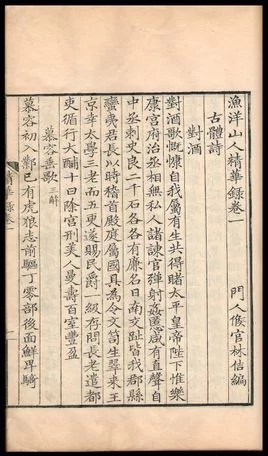 漁洋山人精華錄卷一
門人侯官林佶編
古體詩
對酒
對酒歌慨慷自我屬有生共得睹太平皇帝陛下惟樂
康官府治丞相無私人諸諫官彈射姦慝咸有直聲自
中丞刺史良二千石各各有廉名日南交趾皆我郡縣
蠻夷君長以時稽首殿庭屬國具為令文笥生翠来王
京幸太學三老而五更遂賜民爵一級存問長老遣都
吏循行大酺十日除宮刑美人曼壽百室豐盈
慕容垂歌三解
慕容初入鄴已有虎狼志前驅丁零部後面鮮卑騎
精華錄卷一
一